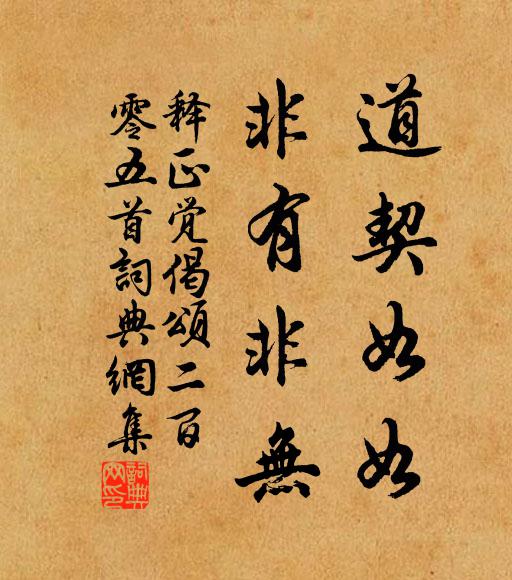 道契如如
非有非無
释正觉偈頌二百
零五首詞典網集
詞典网印